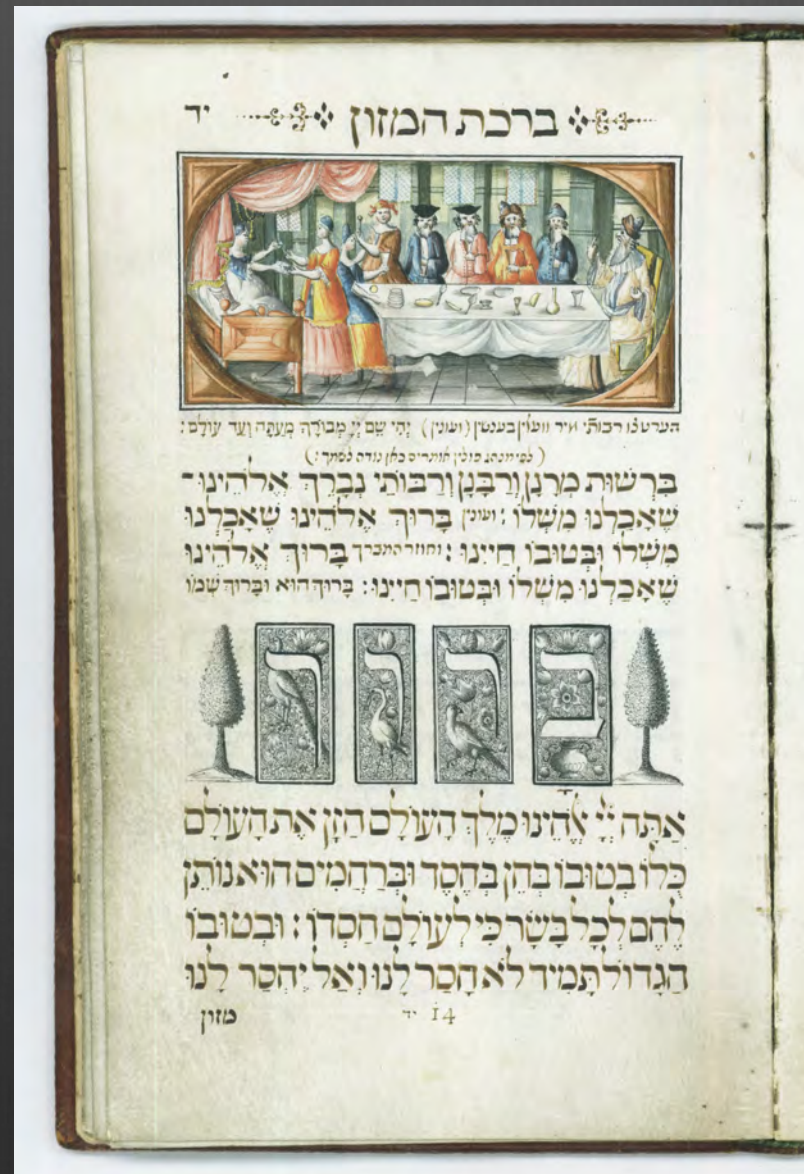 ברכת המזון יד
הערט צו רבותי מיר וועלן בענטשין (ועונין) יְהִי שֵׁם יְיָ מְבוֹרָךְ מֵעַתָּה וְעַד עוֹלָם:
בִּרְשׁוּת מָרָנָן וְרַבָּנָן וְרַבּוֹתַי נְבָרֵךְ אֱלֹהֵינוּ
שֶׁאָכַלְנוּ מִשֶּׁלוֹ: ועונין בָּרוּךְ אֱלֹהֵינוּ שֶׁאָכַלְנוּ
מִשֶּׁלוֹ וּבְטוּבוֹ חַיִינוּ: וחוזר המברך בָּרוּךְ אֱלֹהֵינוּ
שֶׁאָכַלְנוּ מִשֶּׁלוֹ וּבְטוּבוֹ חַיִינוּ: בָּרוּךְ הוּא וּבָרוּךְ שְׁמוֹ
ברוך
אַתָּה יְיָ אֱלֹהֵינוּ מֶלֶךְ הָעוֹלָם הַזָּן אֶת הָעוֹלָם
כֻּלּוֹ בְטוּבוֹ בְּחֵן בְּחֶסֶד וּבְרַחֲמִים הוּא נוֹתֵן
לֶחֶם לְכָל בָּשָׂר כִּי לְעוֹלָם חַסְדּוֹ: וּבְטוּבוֹ
הַגָּדוֹל תָּמִיד לֹא חָסַר לָנוּ וְאַל יֶחְסַר לָנוּ
יד 14
מזון